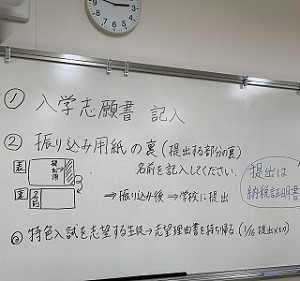 ① 入学志願書 記入
② 振り込み用紙の裏(提出する部分の裏)
名前を記入してください.
表
提出用
裏
名前
⇒振り込み後⇒学校に提出
提出は
納税証明書
③ 特色入試を志望する生徒→志望理由書を持ち帰る.